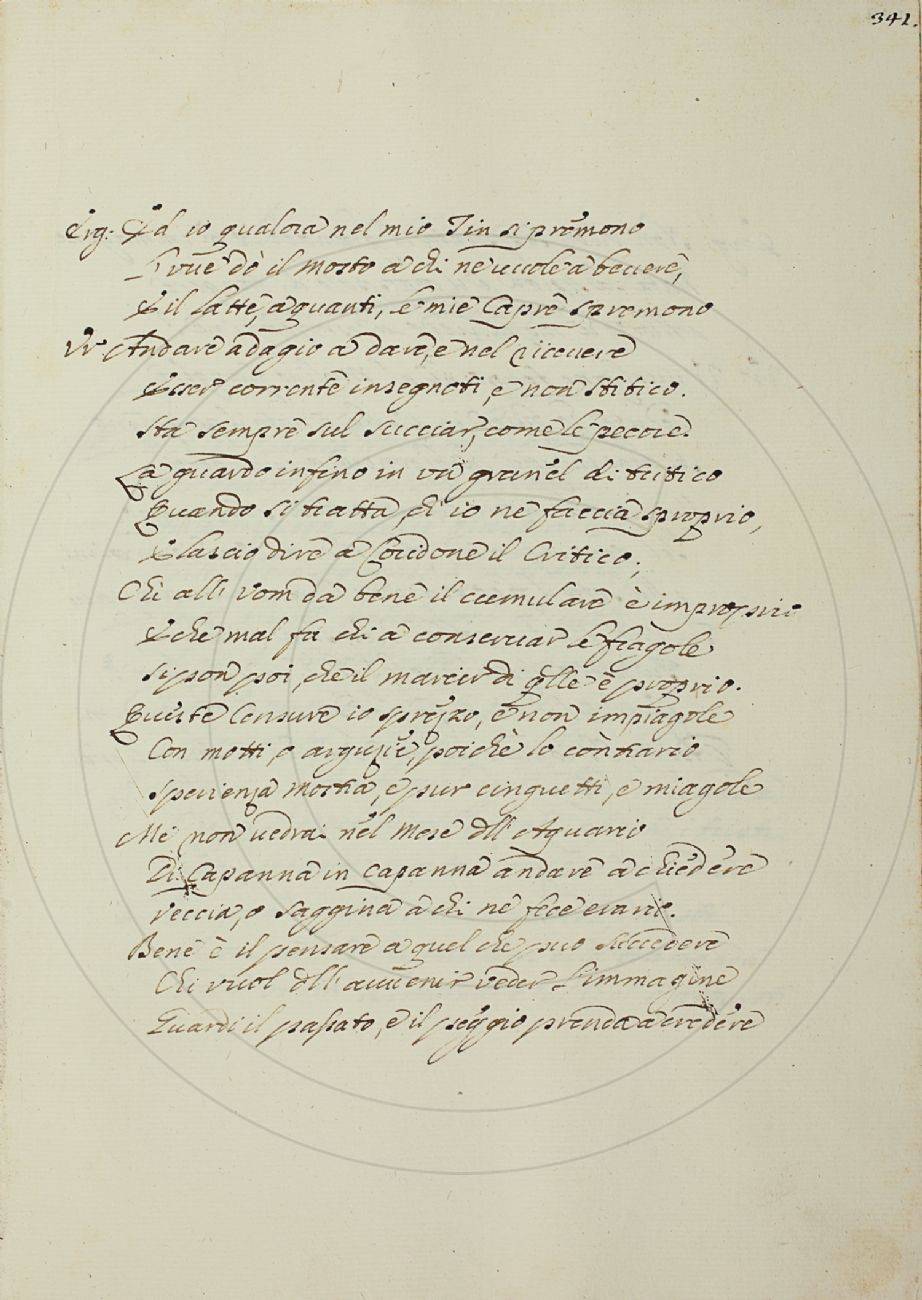 341.
Erg: Ed io qualora nel mio Tin si premono
L'uve dò il mosto a chi ne vuole a bevere,
E il latte, a quanti, le mie Capre spremono
Ur Andare adagio a dare, e nel ricevere
Esser corrente insegnoti, e non stitico.
Sta sempre sul succiar, come le pecore.
Io guardo infino in un granel di tritico
Quando si tratta, ch' io ne faccia sproprio,
E lascio dire a Coridone il Critico,
Ch' all' uom da bene il ccumulare è improprio
E che mal fa chi a conservar le fragole
Si pon poi, che il marcir di q̃lle è proprio.
Queste Censure io sprezzo, e non impiagole
Con motti, o arguzie, poichè lo contrario
Sperienza mostra, e pur cinguetti, e miagole
Me non vedrai nel Mese dll' Aquario
Di Capanna in capanna andare a chiedere
Veccia, o saggina a chi ne fece erario.
Bene è il pensare a quel che può succedere
Chi vuol dll' avvenir veder l'immagine
Guardi il passato, e il peggio prenda a credere